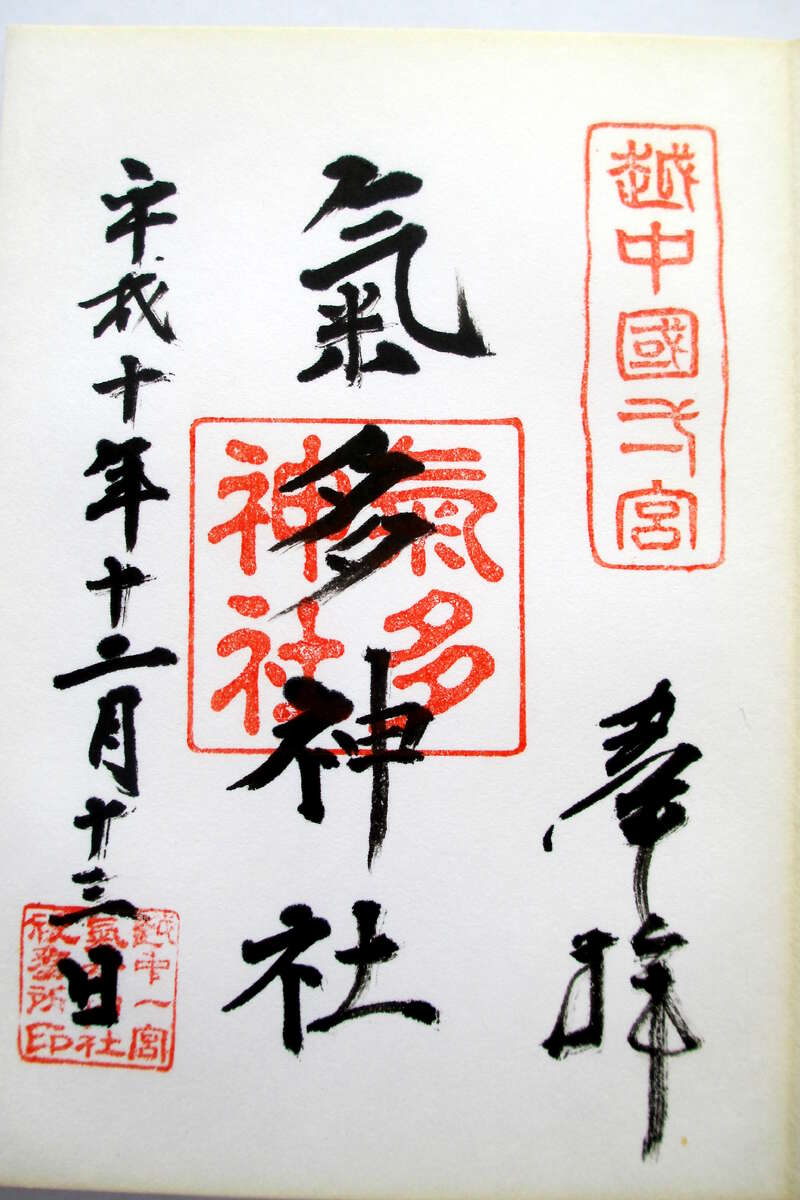 越中國弌宮
奉拝
氣多神社
氣多
神社
平成十年十二月十三日
越中一宮
氣多神社
社務所印